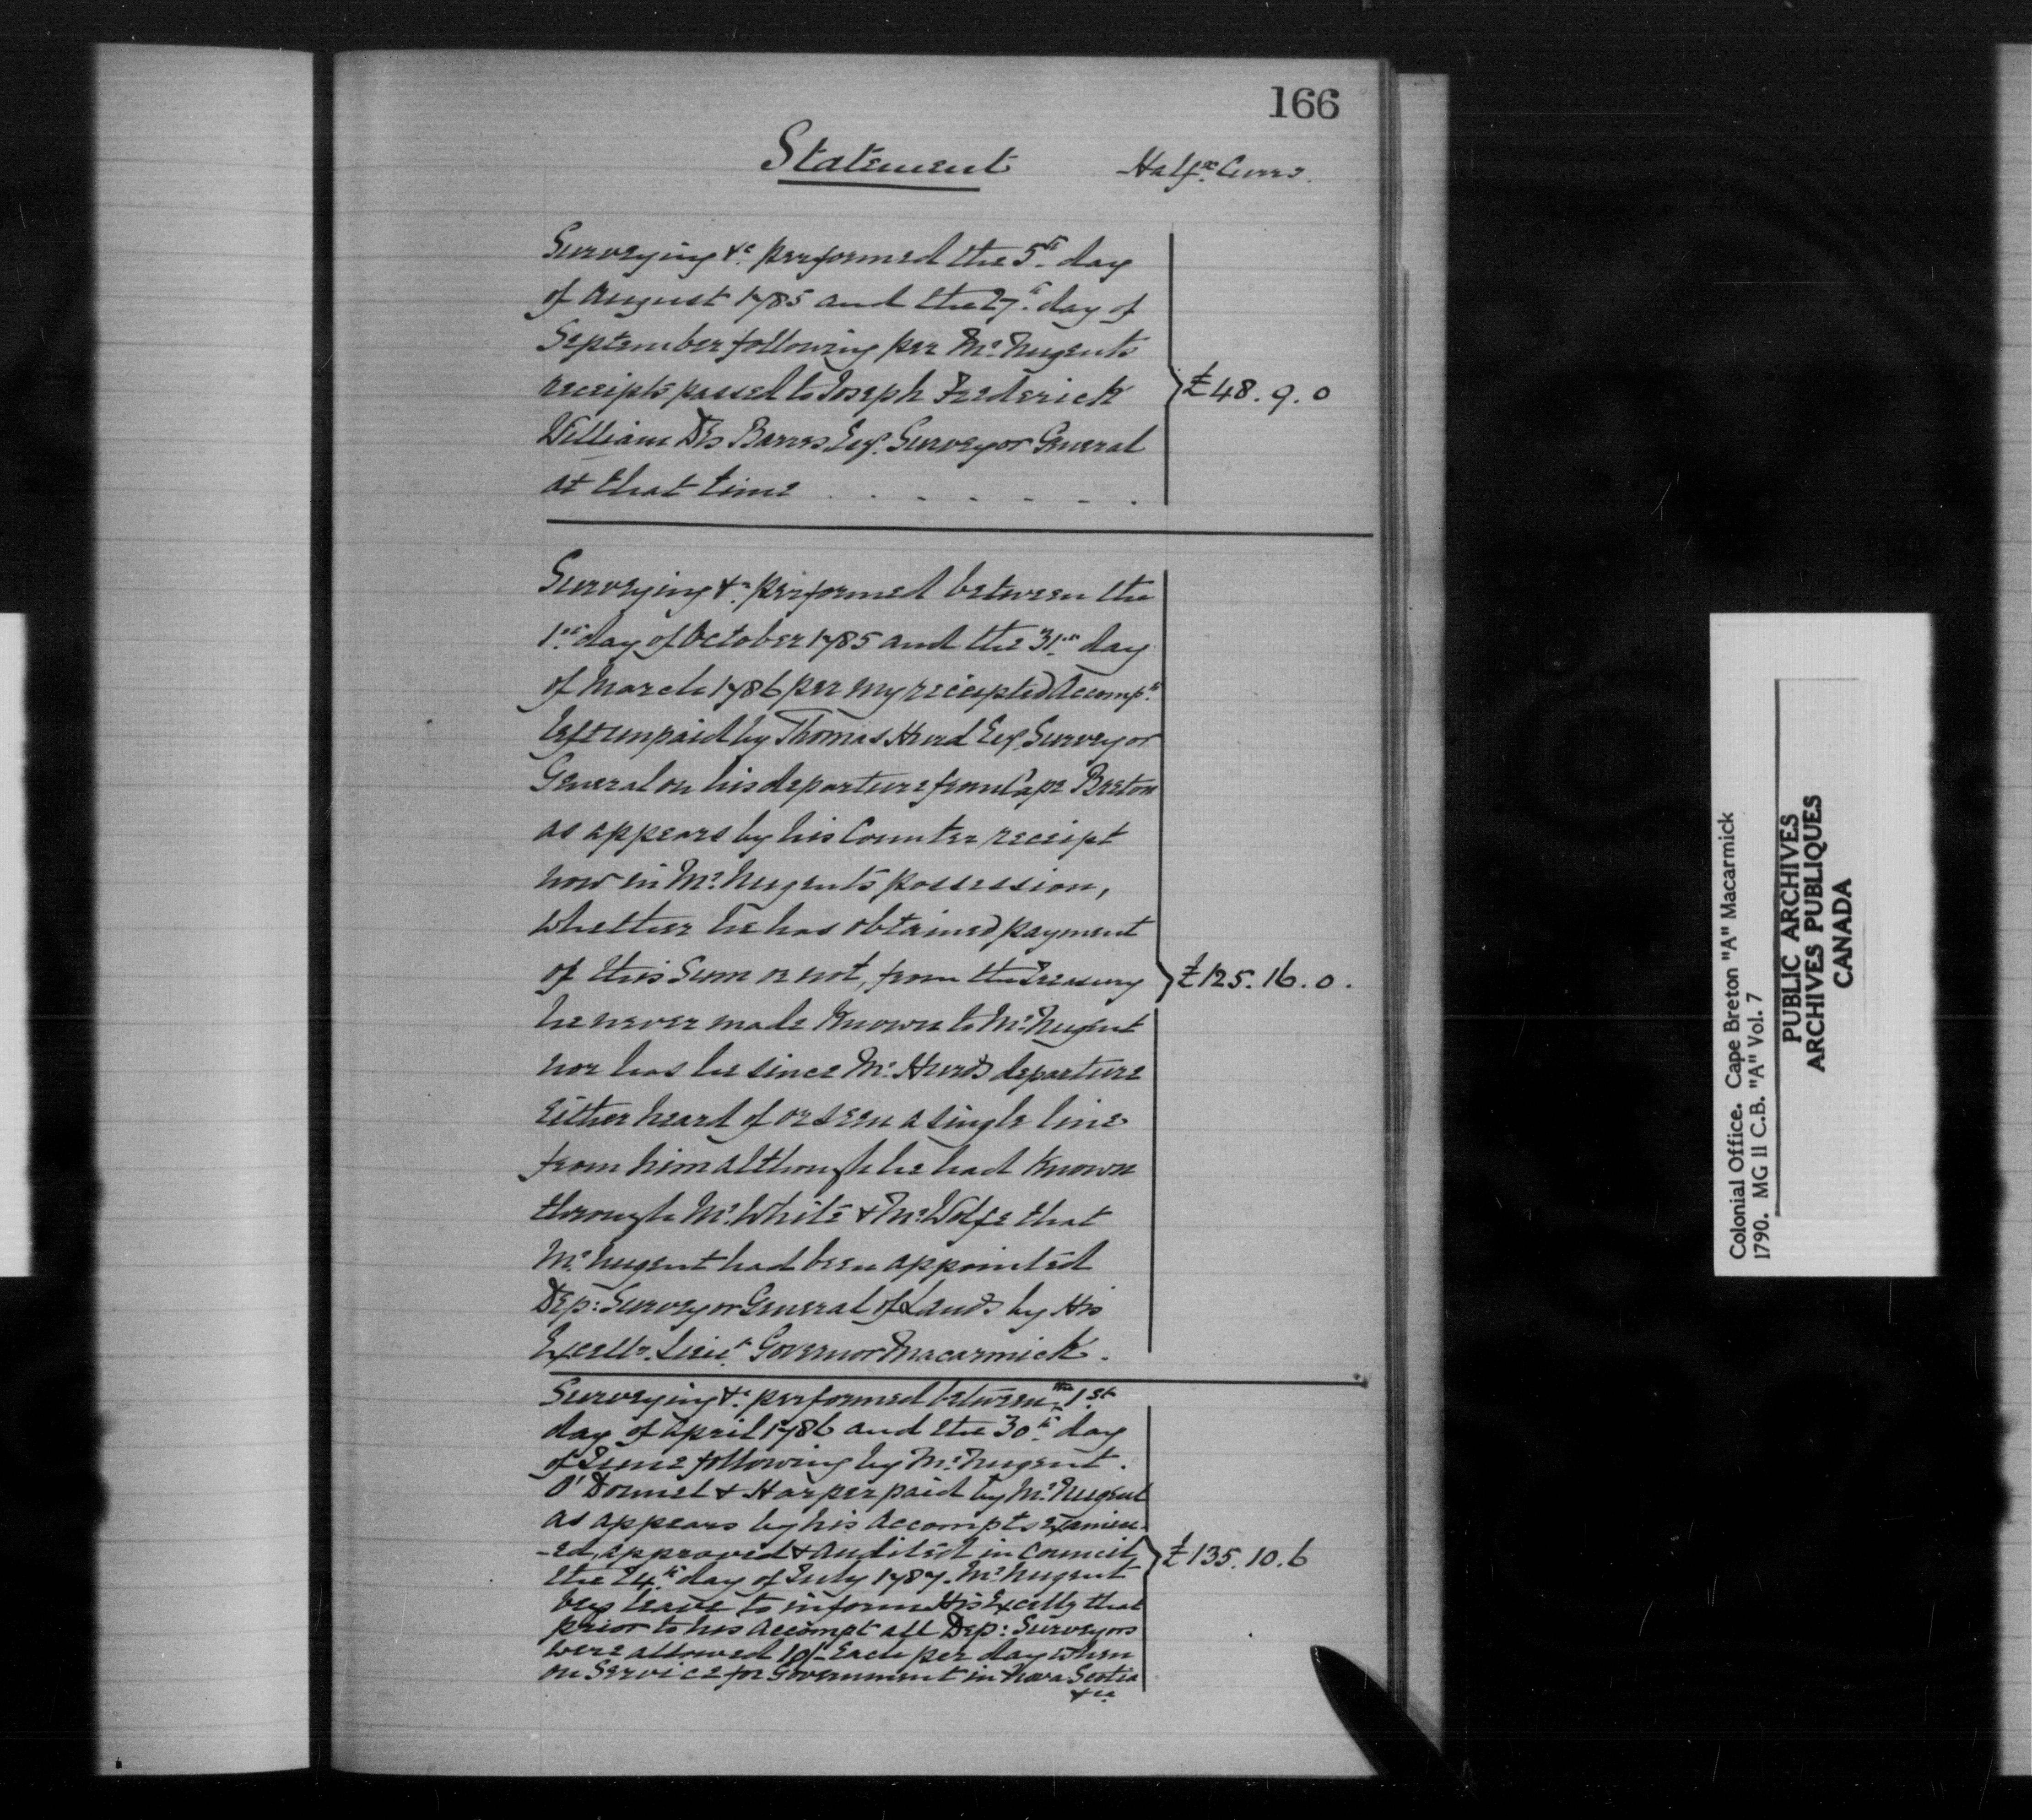 166
Statement
Halfx. Curry.
Surveying &c. performed the 5th day
of August 1785 and the 27th day of
September following per Mr. Nugents
receipts passed to Joseph Frederick
William Des Barres Esqr. Surveyor General
at that time . . . . . . .
£48. 9. 0
Surveying &c. performed between the
1st day of October 1785 and the 31st day
of March 1786 per my receipted Accompts
left unpaid by Thomas Hurd Esq. Surveyor
General on his departure from Cape Breton
as appears by his Counter receipt
now in Mr. Nugent's possession,
whether he has obtained payment
of this Sum or not, from the Treasury
£125. 16. 0.
he never made Known to Mr. Nugent
nor has he since Mr. Hurds departure
Either heard of or seen a single line
from him although he had Known
through Mr. White & Mr. Wolfe that
Mr. Nugent had been appointed
Dep: Surveyor General of Lands by His
Excelly. Lieut. Governor Macarmick.
Surveying &c. performed between the 1st
day of April 1786 and the 30th day
of June following by Mr. Nugent.
O'Donnel & Harper paid by Mr. Nugent
as appears by his Accompts examin-
-ed, approved & audited in Council
£135. 10. 6
the 24th day of July 1787. Mr. Nugent
begs leave to inform His Excelly that
prior to his Accompt all Dep: Surveyors
were allowed 10/- Each per day when
on Service for Government in Nova Scotia
&ca
Colonial Office. Cape Breton "A" Macarmick
1790. MG 11 C.B. "A" Vol. 7
PUBLIC ARCHIVES
ARCHIVES PUBLIQUES
CANADA